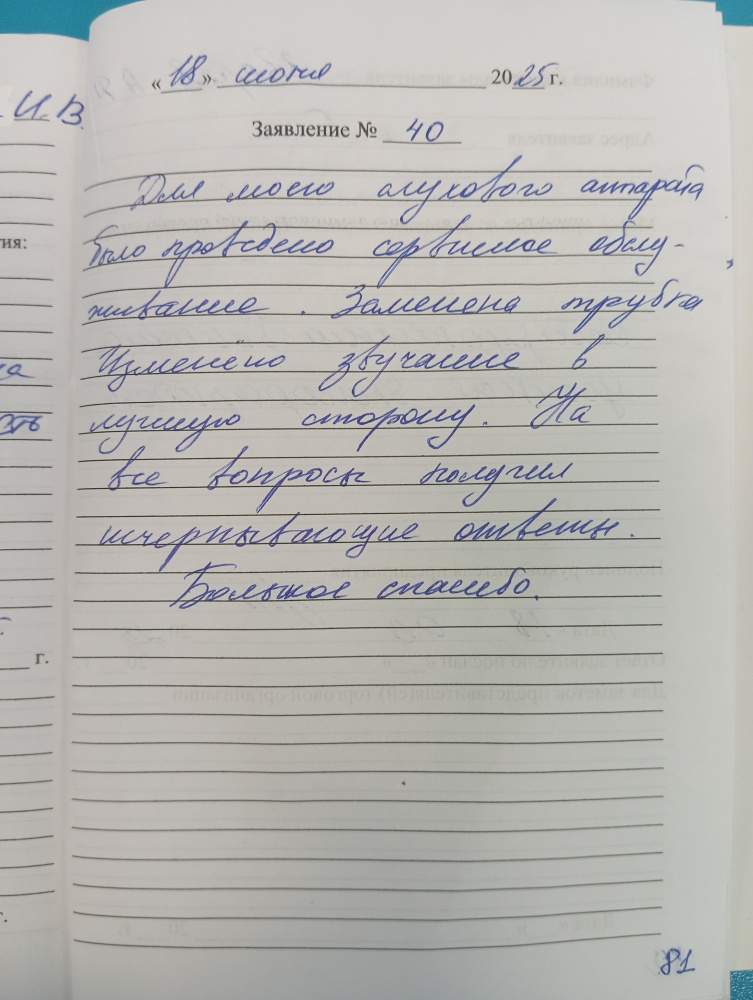 «18» июня 2025 г.
И.В.
Заявление № 40
Для моего слухового аппарата
тия:
было проведено сервисное обслу-
живание. Заменена трубка
Изменено звучание в
лучшую сторону. На
все вопросы получил
исчерпывающие ответы.
Большое спасибо.
г.
г.
81